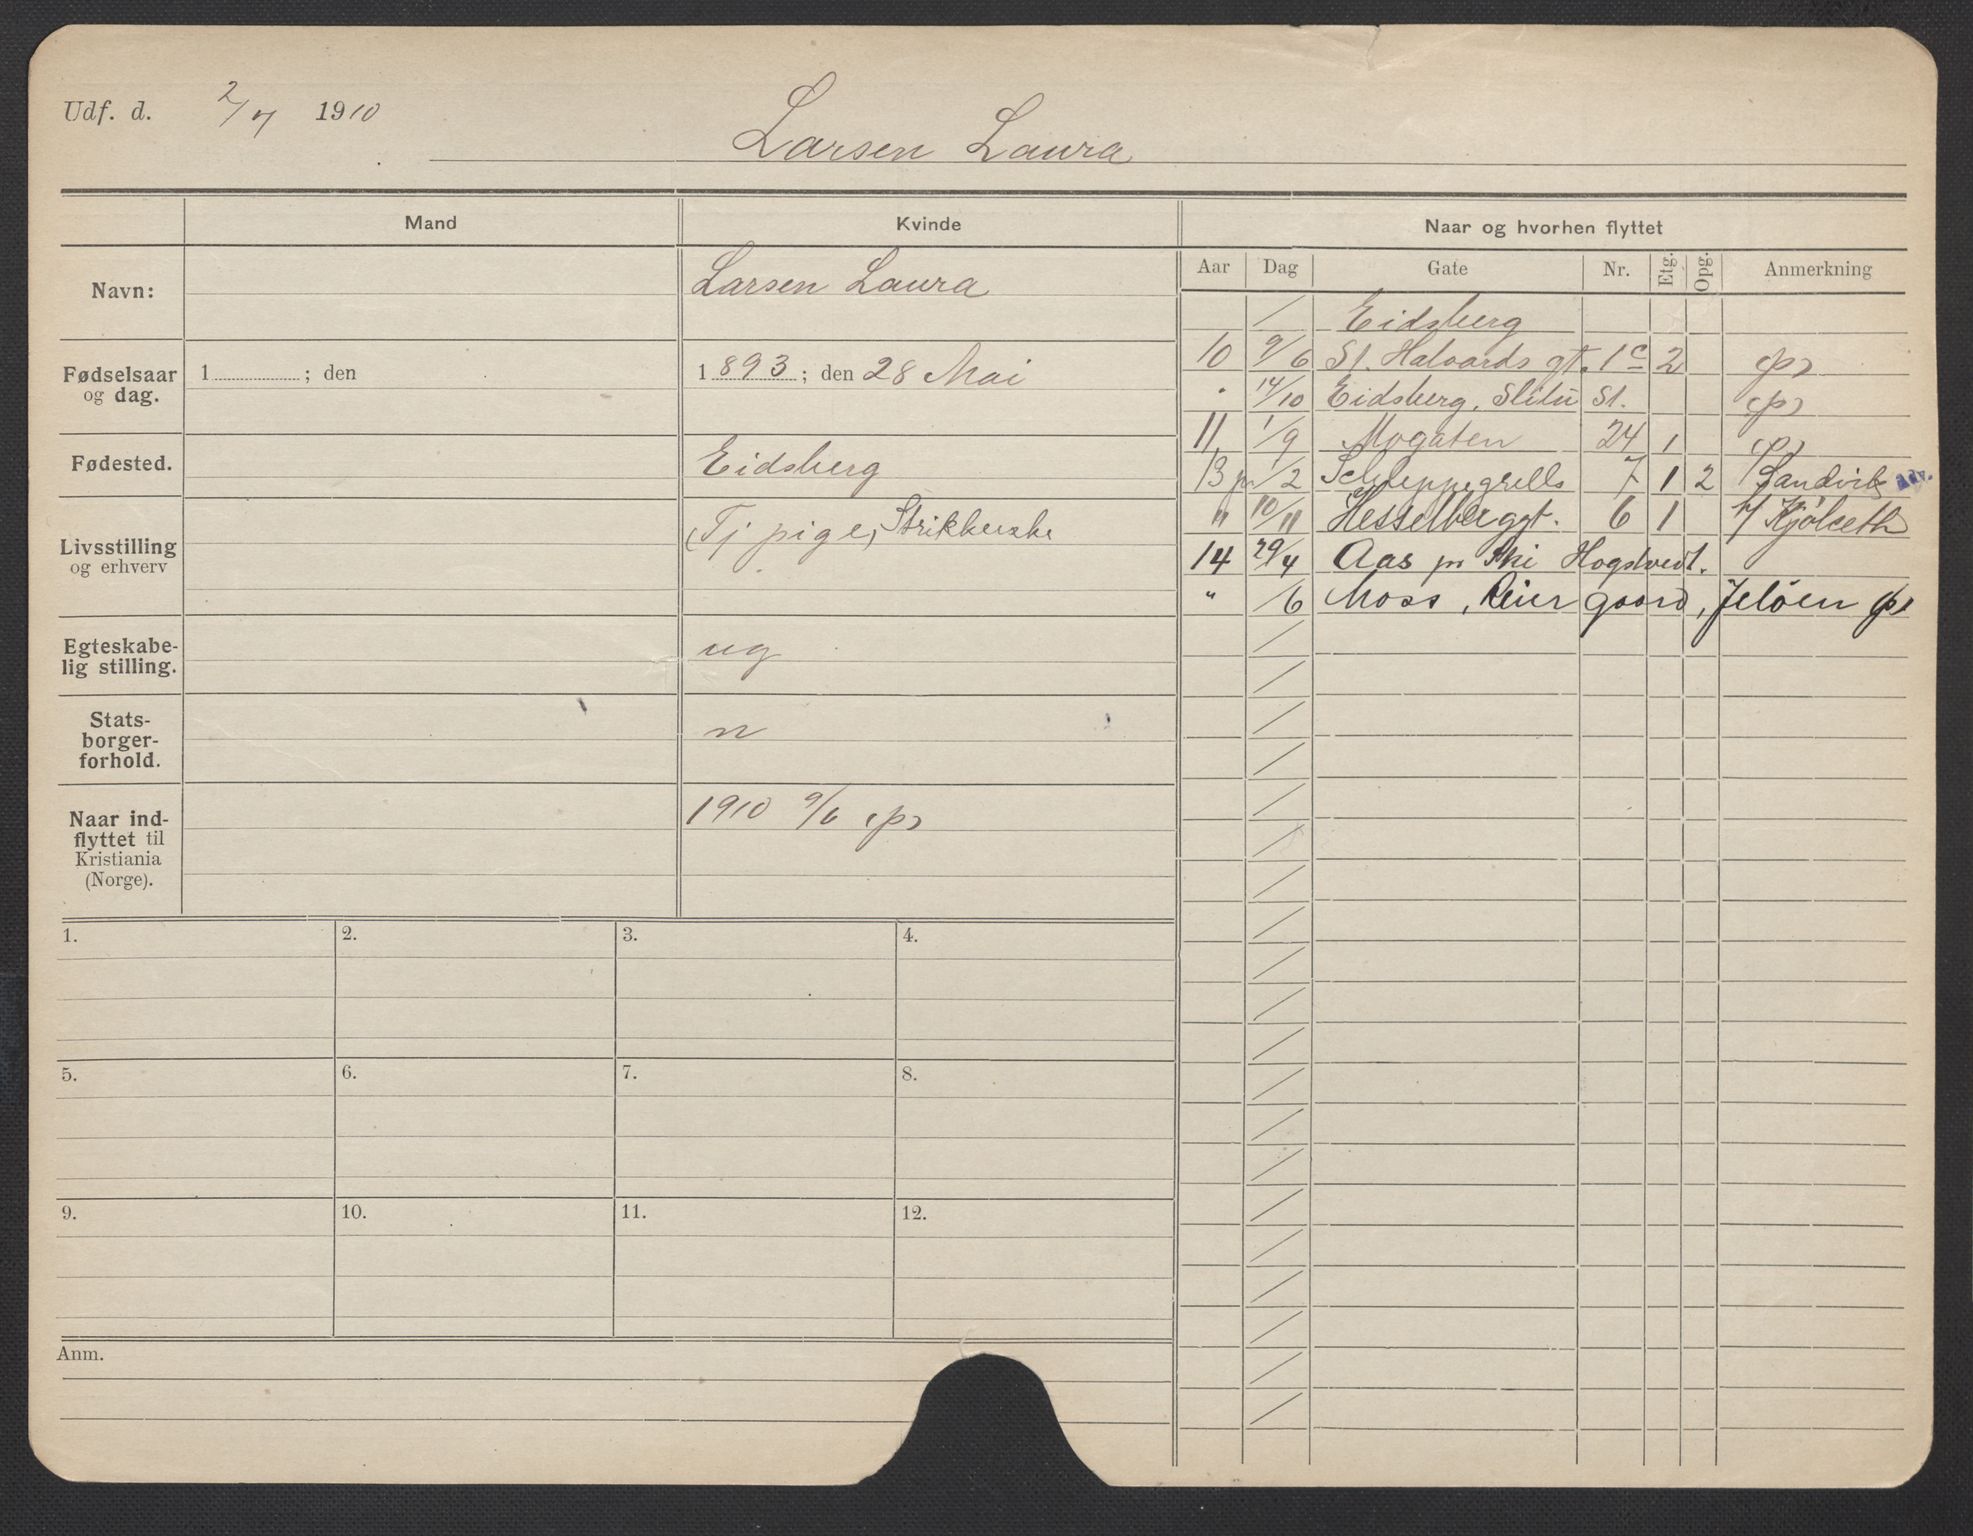 Udf. d. 2/7 1910
Larsen Laura
Mand Kvinde Naar og hvorhen flyttet
Aar Dag Gate Nr. Etg. Opg. Anmerkning
Navn: Larsen Laura
Fødselsaar og dag. 1 ; den 1893 ; den 28 Mai
Fødested. Eidsberg
Livsstilling og erhverv (Tj pige, Strikkerske
Egteskabe-
lig stilling. ug
Stats-
borger-
forhold. n
Naar ind-
flyttet til
Kristiania
(Norge). 1910 9/6 (p)
/ Eidsberg
10 9/6 St. Halvards gt. 1c 2 (p)
" 14/10 Eidsberg, Slitu St. (p)
11 1/9 Mogaten 24 1 (p)
13 pr 1/2 Schleppegrells 7 1 2 /Sandvik Adr.
" 10/11 Hesselberggt. 6 1 h/ Kjølseth
14 29/4 Aas pr Ski Hogstvedt.
" /6 Moss, Reier gaard, Jeløen (p)
1. 2. 3. 4.
5. 6. 7. 8.
9. 10. 11. 12.
Anm.